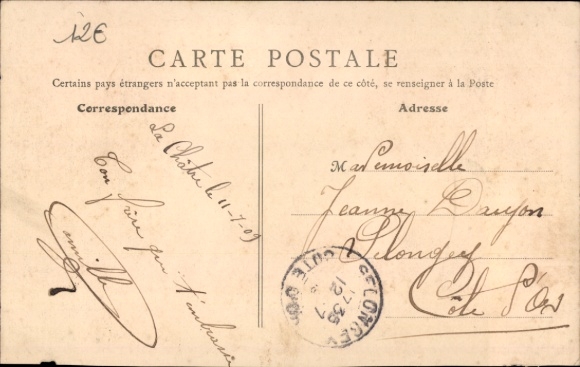 12€
CARTE POSTALE
Certains pays étrangers n'acceptant pas la correspondance de ce côté, se renseigner à la Poste
Correspondance
Adresse
La Châtre le 11-7-09
Ton frère qui t'embrasse
Camille
Mademoiselle
Jeanne Daujon
Selongey
Côte d'Or
SELONGEY
CÔTE D'OR
17 30
12 - 7